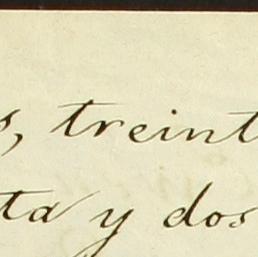 s, treint
ta y dos